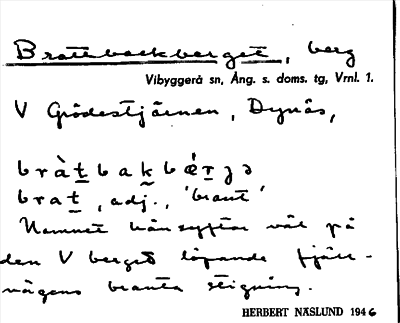 Brattbackberget, berg
Vibyggerå sn, Ång. s. doms. tg, Vrnl. 1.
V Grödestjärnen, Dynäs,
bràt̲bak̬bǽr̲ʒə
brat̲, adj., 'brant'
Namnet hänsyftar väl på
den V berget löpande fjäll-
vägens branta stigning.
HERBERT NÄSLUND 1946